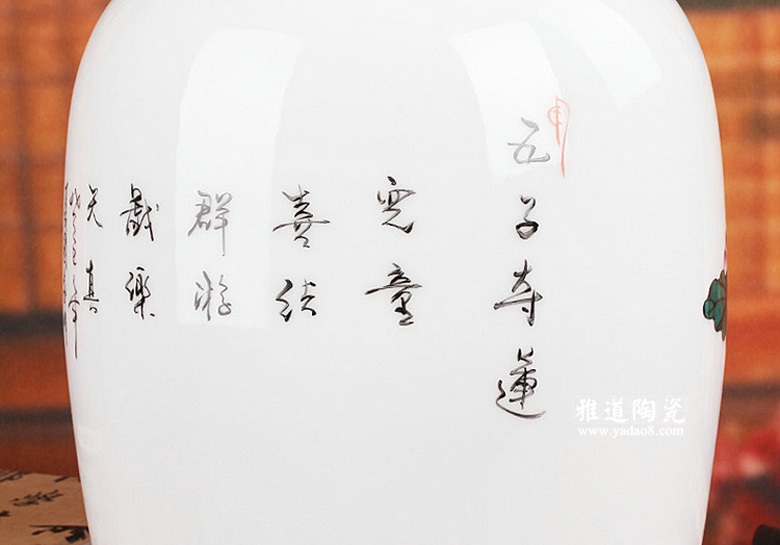 五子夺莲
児童
喜结
群游
戯楽
天真
雅道陶瓷
www.yadao8.com